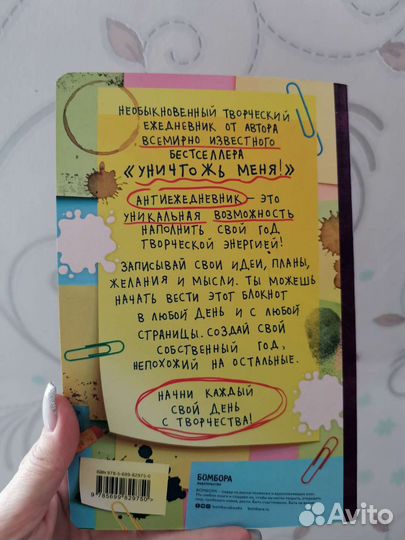 НЕОБЫКНОВЕННЫЙ ТВОРЧЕСКИЙ
ЕЖЕДНЕВНИК ОТ АВТОРА
ВСЕМИРНО ИЗВЕСТНОГО
БЕСТСЕЛЛЕРА
«УНИЧТОЖЬ МЕНЯ!»
АНТИЕЖЕДНЕВНИК – ЭТО
УНИКАЛЬНАЯ ВОЗМОЖНОСТЬ
НАПОЛНИТЬ СВОЙ ГОД
ТВОРЧЕСКОЙ ЭНЕРГИЕЙ!
ЗАПИСЫВАЙ СВОИ ИДЕИ, ПЛАНЫ,
ЖЕЛАНИЯ И МЫСЛИ. ТЫ МОЖЕШЬ
НАЧАТЬ ВЕСТИ ЭТОТ БЛОКНОТ
В ЛЮБОЙ ДЕНЬ И С ЛЮБОЙ
СТРАНИЦЫ. СОЗДАЙ СВОЙ
СОБСТВЕННЫЙ ГОД,
НЕПОХОЖИЙ НА ОСТАЛЬНЫЕ.
НАЧНИ КАЖДЫЙ
СВОЙ ДЕНЬ
С ТВОРЧЕСТВА!
ISBN 978-5-699-82975-0
9 785699 829750 >
БОМБОРА
издательство
Avito